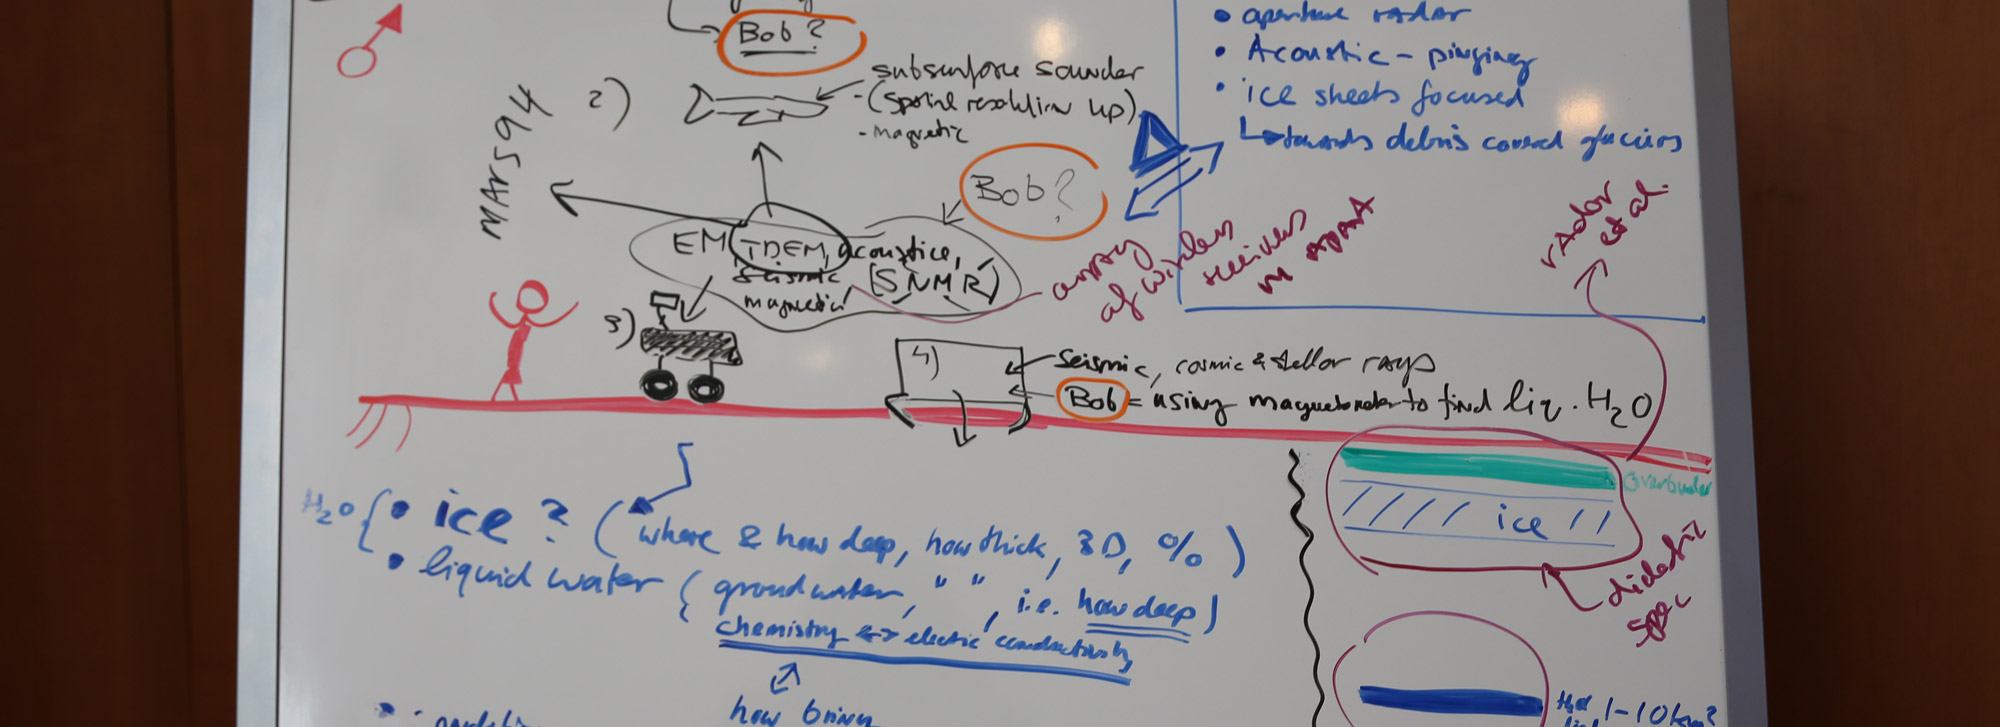 Bob?
2)
subsurface sounder
- (spatial resolution up)
- magnetic
MARS94
Bob?
EM, TDEM, acoustice,
seismic
magnetic
(SNMR)
array
of wireless
receivers
• aperture radar
• Acoustic - pinging
• ice sheets focused
↳ towards debris covered glaciers
radar
et al.
3)
4)
Seismic, cosmic & stellar rays
Bob = using magnetometer to find liq. H2O
overburden
ice
dielectric
spec
H2O { • ice? (where & how deep, how thick, 3D, %)
• liquid water (groundwater, " ", i.e. how deep)
chemistry <-> electric conductivity
how briny
1-10 km?